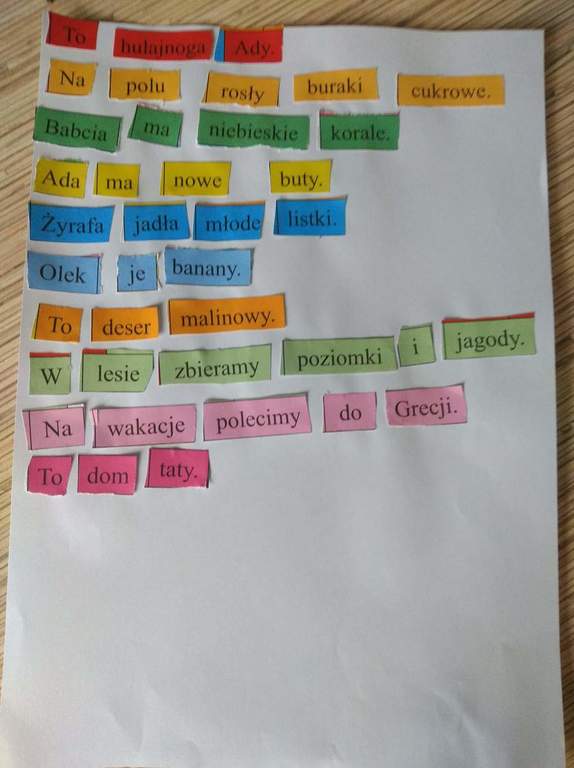 To hulajnoga Ady.
Na polu rosły buraki cukrowe.
Babcia ma niebieskie korale.
Ada ma nowe buty.
Żyrafa jadła młode listki.
Olek je banany.
To deser malinowy.
W lesie zbieramy poziomki i jagody.
Na wakacje polecimy do Grecji.
To dom taty.